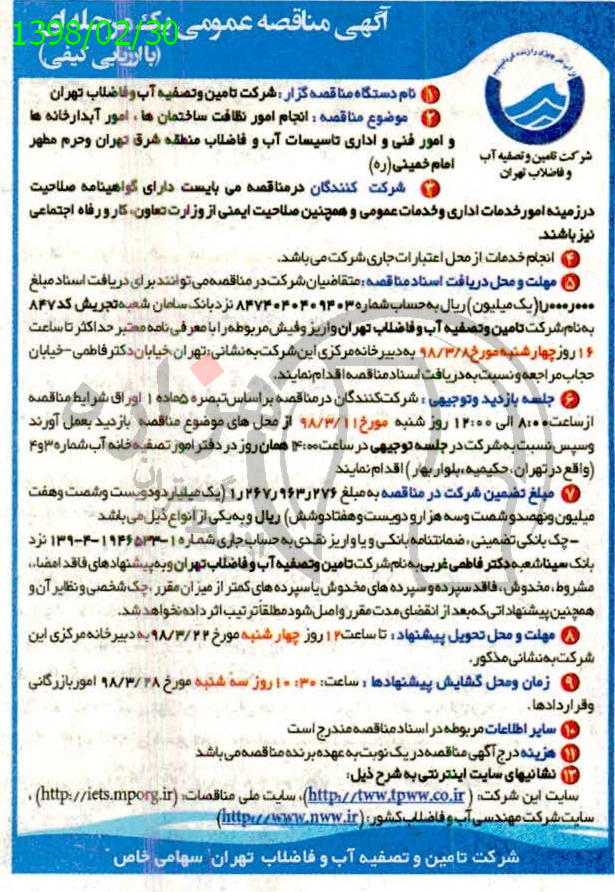 آگهی مناقصه عمومی یک مرحله‌ای
1398/02/30
(با ارزیابی کیفی)
شرکت تامین و تصفیه آب
و فاضلاب تهران
۱ نام دستگاه مناقصه گزار : شرکت تامین و تصفیه آب و فاضلاب تهران
۲ موضوع مناقصه : انجام امور نظافت ساختمان ها ، امور آبدارخانه ها
و امور فنی و اداری تاسیسات آب و فاضلاب منطقه شرق تهران وحرم مطهر
امام خمینی(ره)
۳ شرکت کنندگان درمناقصه می بایست دارای گواهینامه صلاحیت
درزمینه امور خدمات اداری وخدمات عمومی و همچنین صلاحیت ایمنی از وزارت تعاون، کار و رفاه اجتماعی
نیز باشند.
۴ انجام خدمات از محل اعتبارات جاری شرکت می باشد.
۵ مهلت و محل دریافت اسناد مناقصه : متقاضیان شرکت در مناقصه می توانند برای دریافت اسناد مبلغ
۱٫۰۰۰٫۰۰۰(یک میلیون) ریال به حساب شماره ۸۴۷۴۰۴۰۴۰۹۴۰۳ نزد بانک سامان شعبه تجریش کد ۸۴۷
به نام شرکت تامین وتصفیه آب و فاضلاب تهران واریز وفیش مربوطه را با معرفی نامه معتبر حداکثر تا ساعت
۱۶ روز چهار شنبه مورخ ۹۸/۳/۸ به دبیرخانه مرکزی این شرکت به نشانی : تهران، خیابان دکتر فاطمی - خیابان
حجاب مراجعه ونسبت به دریافت اسناد مناقصه اقدام نمایند.
۶ جلسه بازدید وتوجیهی : شرکت کنندگان در مناقصه بر اساس تبصره ۵ ماده ۱ اوراق شرایط مناقصه
از ساعت ۸:۰۰ الی ۱۲:۰۰ روز شنبه مورخ ۹۸/۳/۱۱ از محل های موضوع مناقصه بازدید بعمل آورند
وسپس نسبت به شرکت در جلسه توجیهی در ساعت ۱۴:۰۰ همان روز در دفتر امور تصفیه خانه آب شماره ۳و۴
(واقع در تهران، حکیمیه، بلوار بهار) اقدام نمایند
۷ مبلغ تضمین شرکت در مناقصه به مبلغ ۱٫۲۶۷٫۹۶۳٫۲۷۶ (یک میلیارد و دویست وشصت وهفت
میلیون ونهصد و شصت وسه هزار و دویست و هفتاد و شش) ریال و به یکی از انواع ذیل می باشد
- چک بانکی تضمینی ، ضمانتنامه بانکی و یا واریز نقدی به حساب جاری شماره ۱-۱۹۴۶۵۳۳-۴-۱۳۹ نزد
بانک سینا شعبه دکتر فاطمی غربی به نام شرکت تامین وتصفیه آب و فاضلاب تهران و به پیشنهادهای فاقد امضا،
مشروط، مخدوش، فاقد سپرده و سپرده های مخدوش یا سپرده های کمتر از میزان مقرر ، چک شخصی و نظایر آن و
همچنین پیشنهاداتی که بعد از انقضای مدت مقرر واصل شود مطلقاً ترتیب اثر داده نخواهد شد.
۸ مهلت و محل تحویل پیشنهاد : تا ساعت ۱۲ روز چهار شنبه مورخ ۹۸/۳/۲۲ به دبیرخانه مرکزی این
شرکت به نشانی مذکور.
۹ زمان ومحل گشایش پیشنهادها : ساعت: ۱۰:۳۰ روز سه شنبه مورخ ۹۸/۳/۲۸ امور بازرگانی
وقراردادها.
۱۰ سایر اطلاعات مربوطه در اسناد مناقصه مندرج است
۱۱ هزینه درج آگهی مناقصه در یک نوبت به عهده برنده مناقصه می باشد
۱۲ نشانیهای سایت اینترنتی به شرح ذیل:
سایت این شرکت: (http://tww.tpww.co.ir)، سایت ملی مناقصات: (http://iets.mporg.ir) ،
سایت شرکت مهندسی آب و فاضلاب کشور : (http://www.nww.ir)
شرکت تامین و تصفیه آب و فاضلاب تهران سهامی خاص